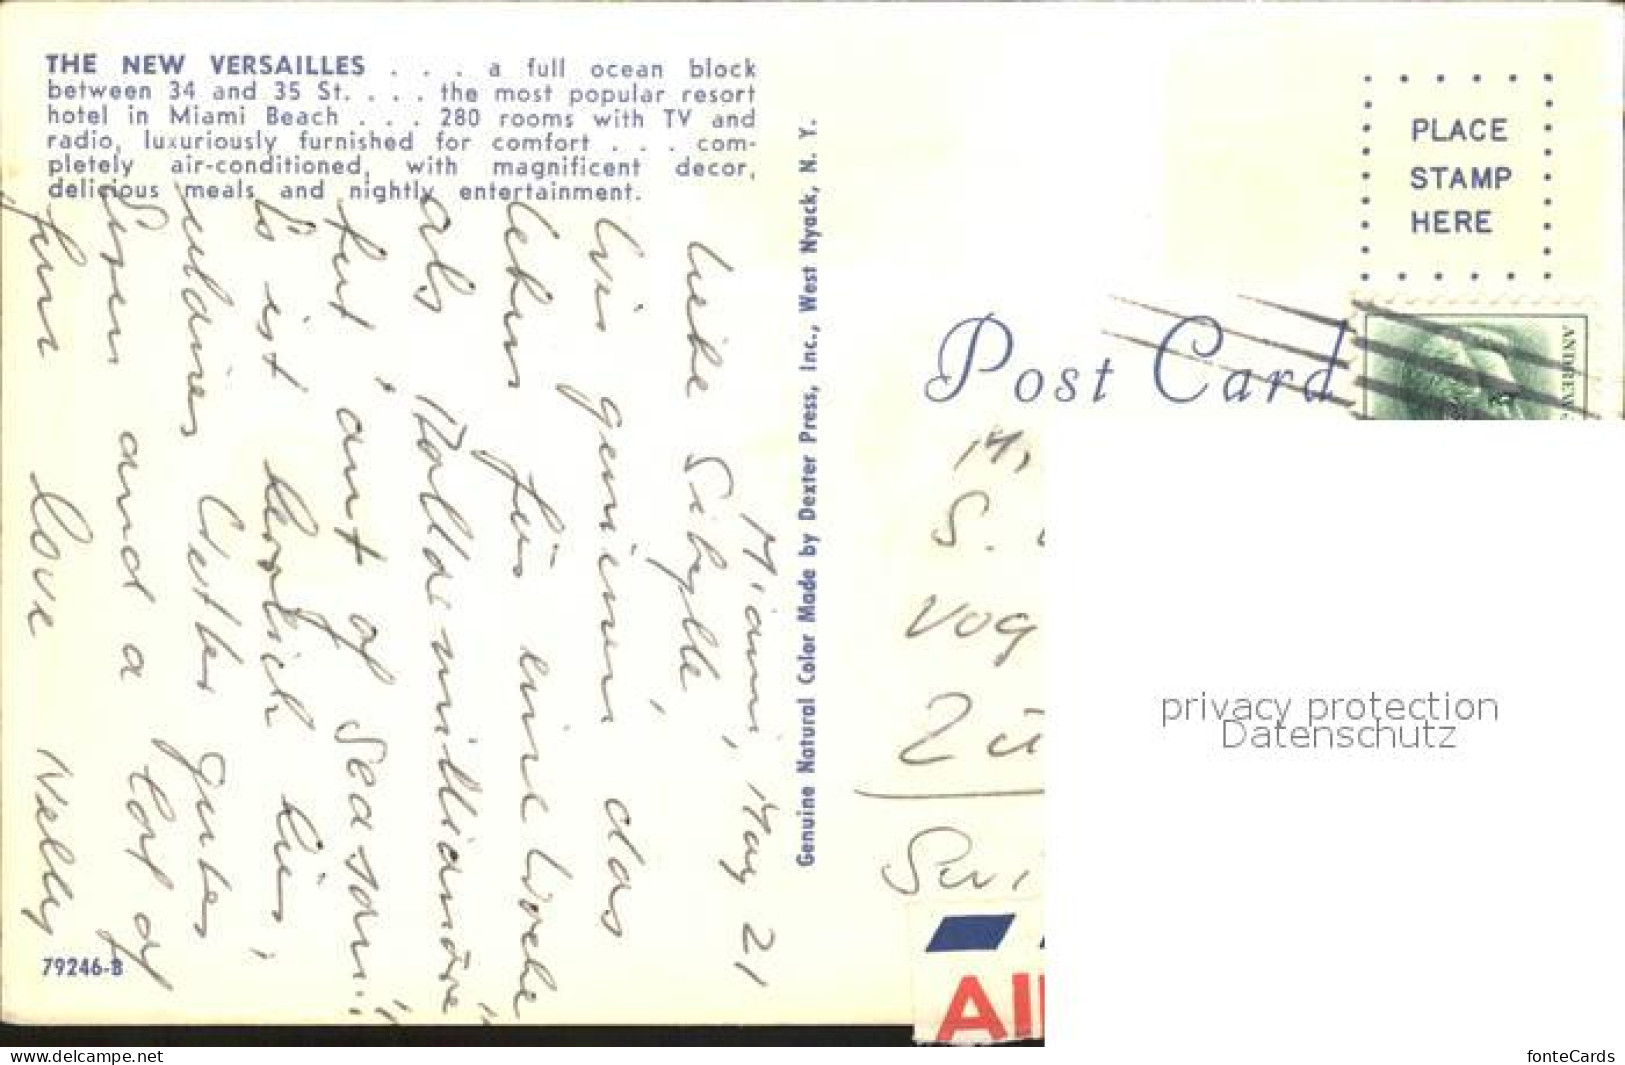 THE NEW VERSAILLES . . . a full ocean block
between 34 and 35 St. . . . the most popular resort
hotel in Miami Beach . . . 280 rooms with TV and
radio, luxuriously furnished for comfort . . . com-
pletely air-conditioned, with magnificent decor,
delicious meals and nightly entertainment.
Miami, May 21
Liebe Sibylle,
Wir geniessen das
Leben für eine Woche
als "Dollarmillionäre"
but, "out of season"!
Es ist herrlich hier,
schönes Wetter gutes
Essen and a lot of
fun love Nelly
79246-B
Genuine Natural Color Made by Dexter Press, Inc., West Nyack, N. Y.
PLACE
STAMP
HERE
Post Card
ANDREW
S.
Vog
Zü
AI
privacy protection
Datenschutz
www.delcampe.net
fonteCards